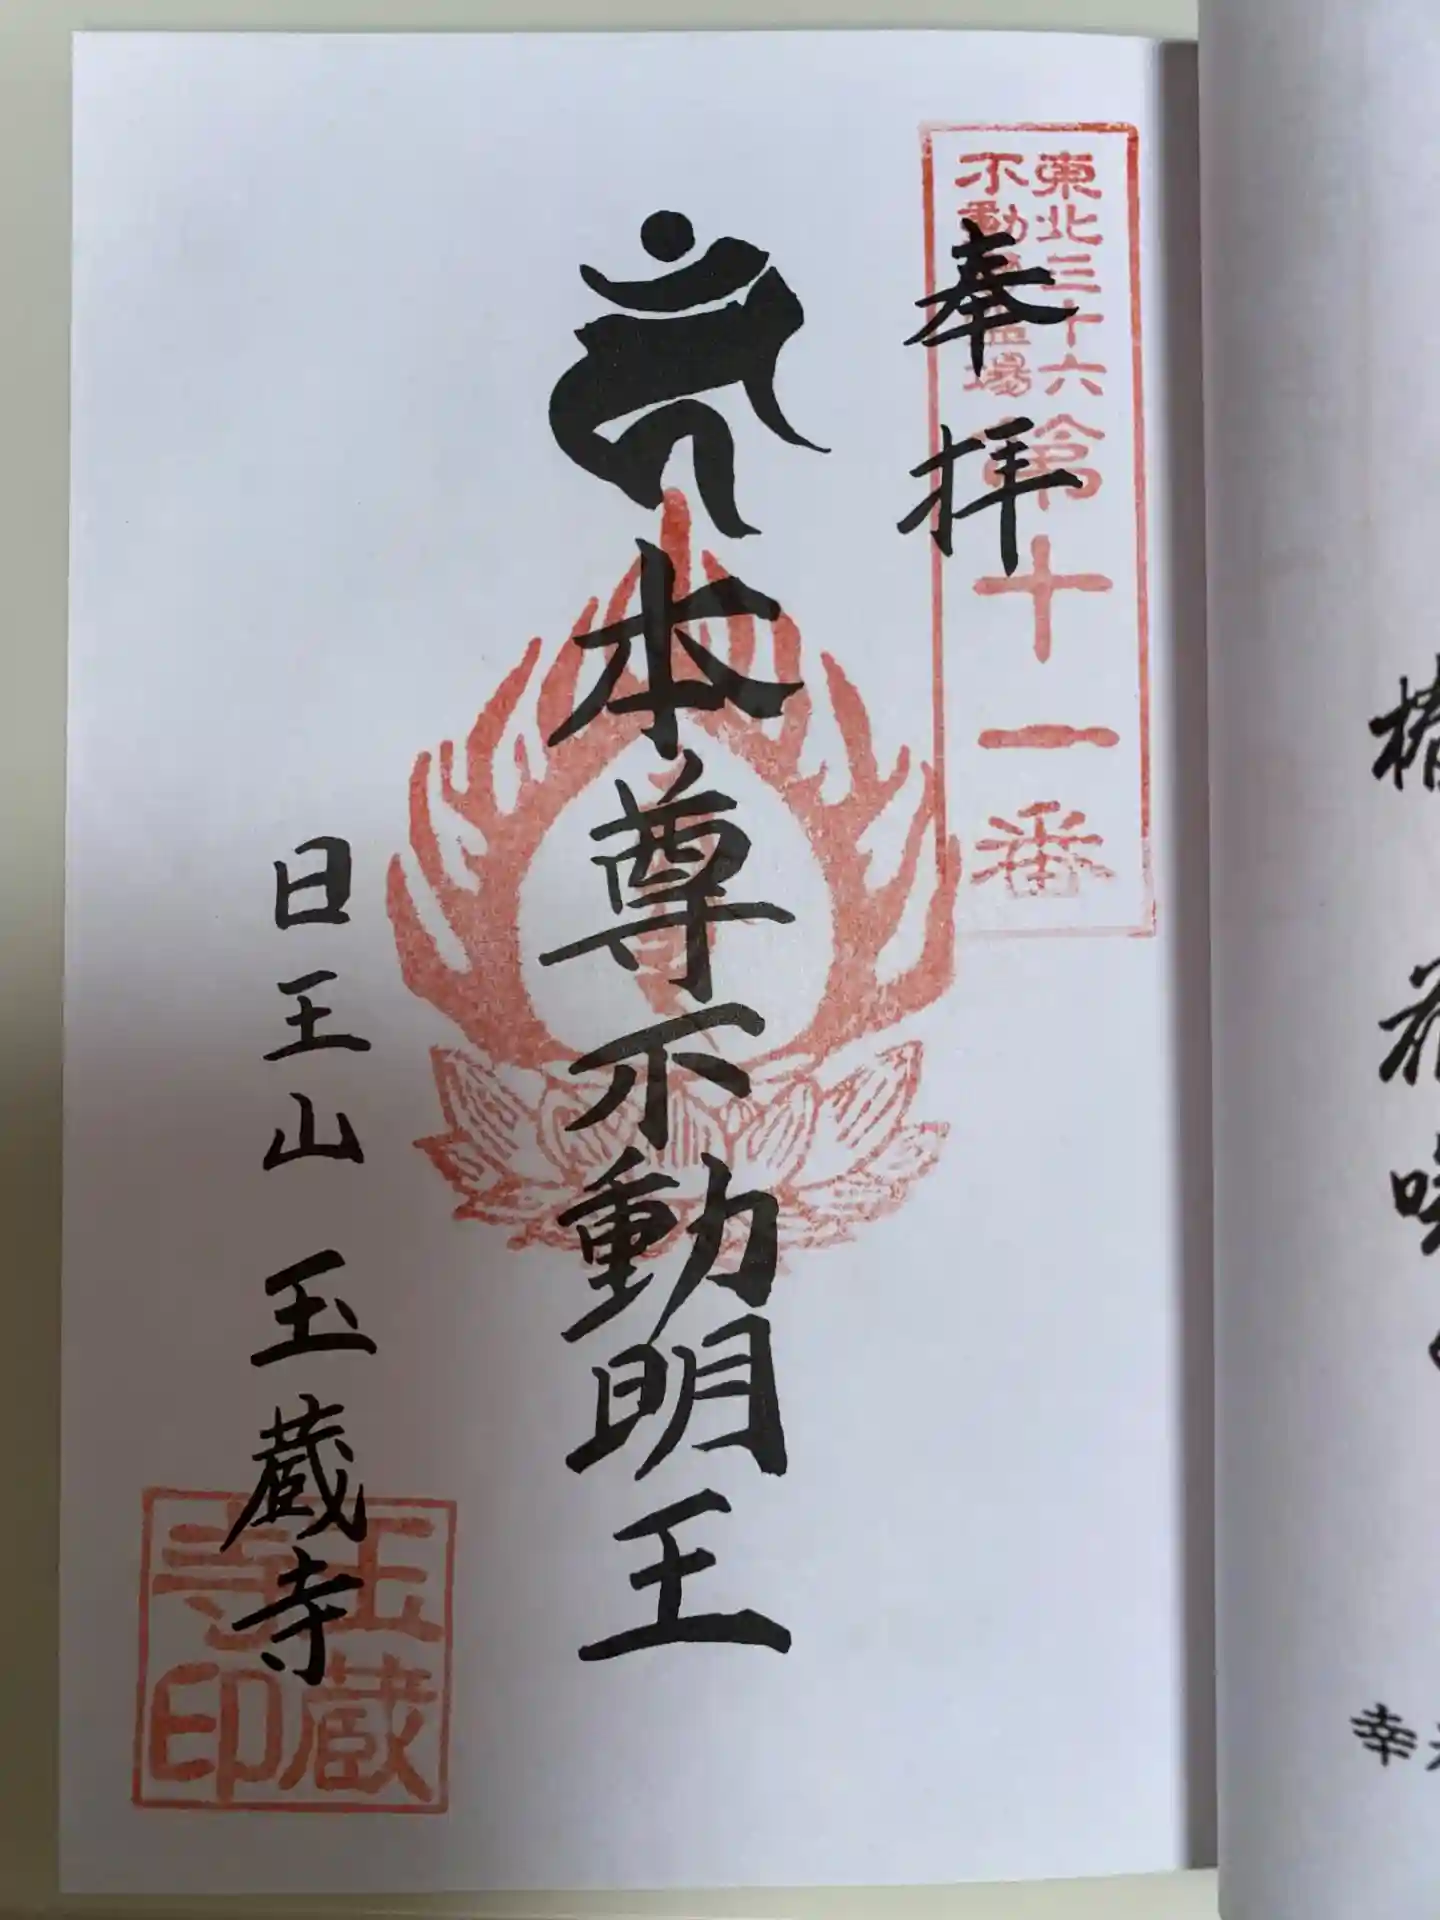 東北三十六
不動尊霊場
第十一番
奉拝
本尊不動明王
日王山 玉蔵寺
玉蔵
寺印
椿
花
幸